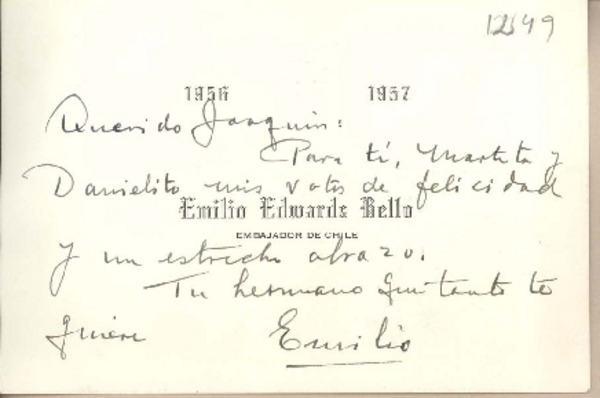 12549
1956 1957
Querido Joaquín:
Para tí, Martita y
Danielito mis votos de felicidad
Emilio Edwards Bello
EMBAJADOR DE CHILE
y un estrecho abrazo.
Tu hermano que tanto te
quiere Emilio